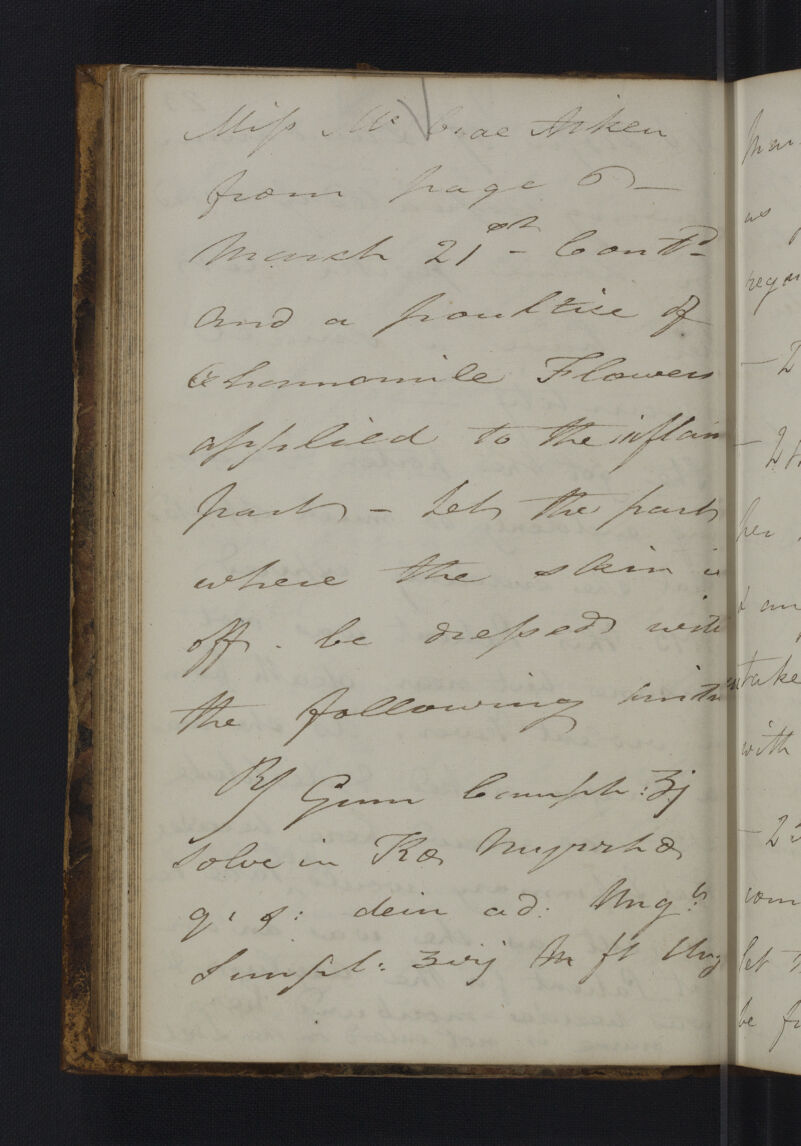 Miss Mc Crae Aiken
from page
March 21st - Contd -
and a poultice of
Chammomile Flowers
applied to the inflam
part - Let the part
where the skin is
off - be dressed with
the following
℞ Gum Camph: ʒj
Solve in Myrrhæ
q: s: dein ad: Ungt
Simpl: M ft Ung
as
-2
her
take
with
let
be